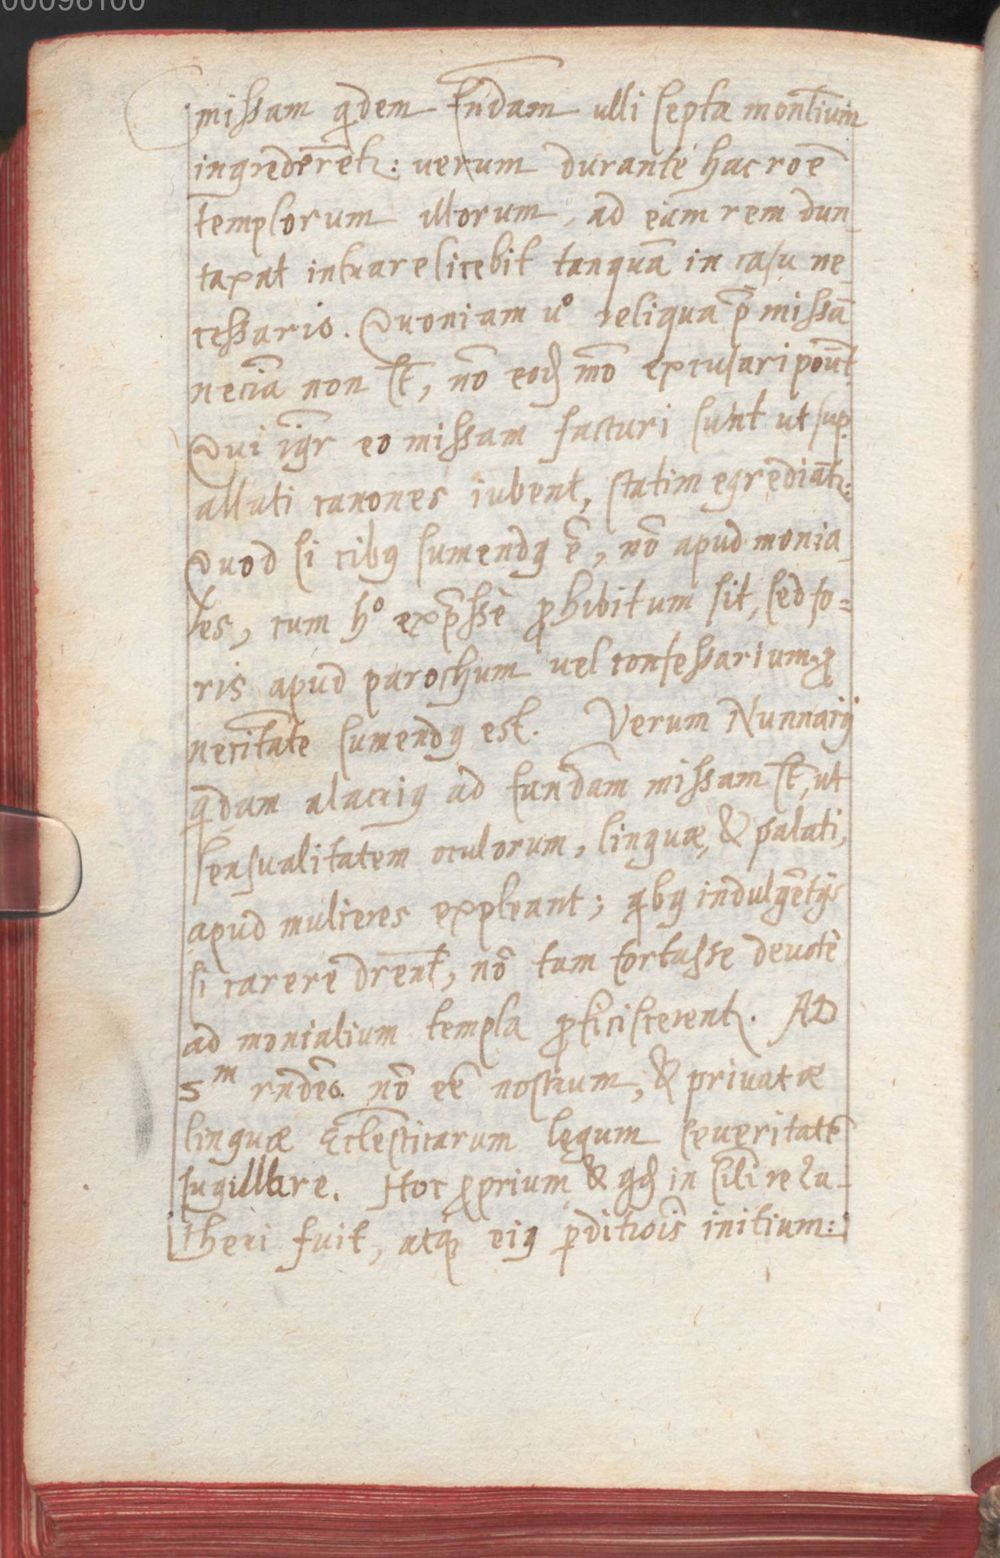 00096100
missam qdem fndam ulli septa montiuin
ingrederēt: verum durante hac roē
templorum illorum, ad eam rem dun
taxat intrare licebit tanquā in casu ne
cessario. Quoniam uº reliqua p̄missā
necia non st, nō eod mō excusari pount
Qui igr eo missam facturi sunt ut sup.
allati canones iubent, statim egrediāt:
Quod si cibq sumendq ē, nō apud monia
les, cum hº exp̄ssè ꝓhibitum sit, sed fo=
ris apud parochum uel confessarium ꝓ
necitate sumendq est. Verum Nunnacij
qdam alacriq ad fandam missam st, ut
sensualitatem oculorum, linguæ, & palati,
apud mulieres expleant; qbq indulgētijs
si carere drent, nō tam fortasse deuotè
ad monialium templa ꝓficiscerent. AD
5m rndeo. nō eē nostrum, & priuatæ
linguæ Ecclesticarum legum seueritatē
sugillare. Hoc ꝓprium & qd in sili re Lu-
theri fuit, atq eiq ꝑditiois initium: